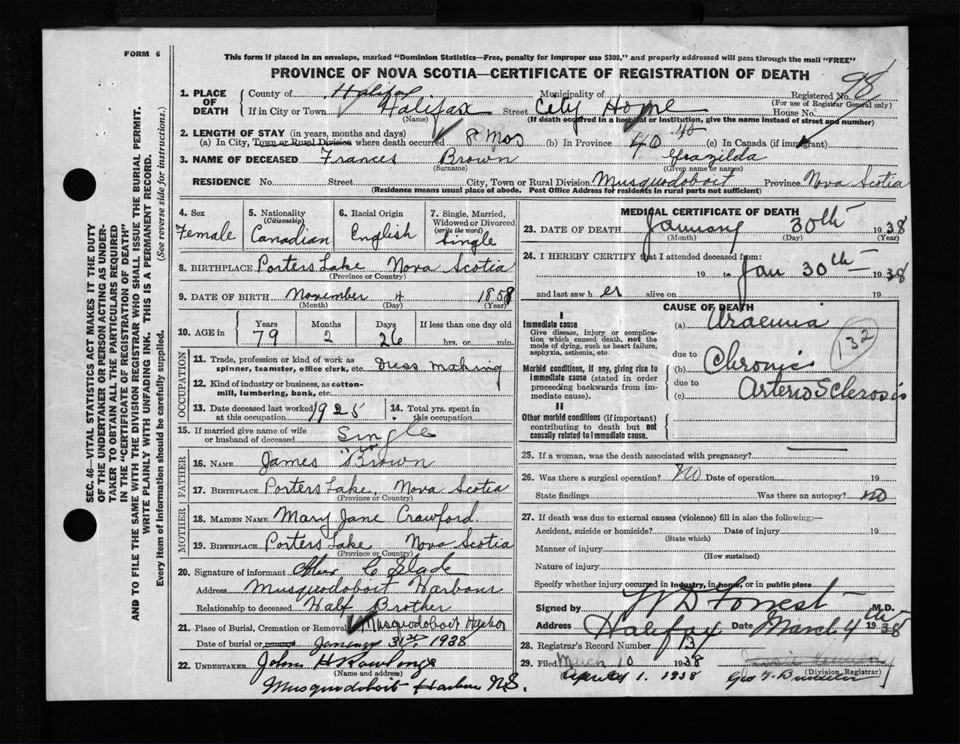 FORM 6
This form if placed in an envelope, marked "Dominion Statistics—Free, penalty for improper use $300," and properly addressed will pass through the mail "FREE"
PROVINCE OF NOVA SCOTIA—CERTIFICATE OF REGISTRATION OF DEATH
98
1. PLACE OF DEATH
County of Halifax Municipality of Registered No.
(For use of Registrar General only)
If in City or Town Halifax Street City Home House No.
(Name) (If death occurred in a hospital or institution, give the name instead of street and number)
2. LENGTH OF STAY (in years, months and days)
(a) In City, Town or Rural Division where death occurred 8 Mos (b) In Province 40 (c) In Canada (if immigrant)
3. NAME OF DECEASED Frances Brown Grazilda
(Surname) (Given name or names)
RESIDENCE No. Street City, Town or Rural Division Musquodoboit Province Nova Scotia
(Residence means usual place of abode. Post Office Address for Residents in rural parts not sufficient)
4. Sex
Female
5. Nationality
(Citizenship)
Canadian
6. Racial Origin
English
7. Single, Married, Widowed or Divorced
(write the word)
Single
8. BIRTHPLACE Porters Lake Nova Scotia
(Province or Country)
9. DATE OF BIRTH November 4 1858
(Month) (Day) (Year)
10. AGE in
Years Months Days If less than one day old
79 2 26 hrs. or min.
OCCUPATION
11. Trade, profession or kind of work as spinner, teamster, office clerk, etc. Dress making
12. Kind of industry or business, as cotton-mill, lumbering, bank, etc.
13. Date deceased last worked at this occupation 1925
14. Total yrs. spent in this occupation
15. If married give name of wife or husband of deceased Single
FATHER
16. NAME James Brown
17. BIRTHPLACE Porters Lake, Nova Scotia
(Province or Country)
MOTHER
18. MAIDEN NAME Mary Jane Crawford.
19. BIRTHPLACE Porters Lake Nova Scotia
(Province or Country)
20. Signature of informant C Slade
Address Musquodoboit Harbour
Relationship to deceased Half Brother
21. Place of Burial, Cremation or Removal Musquodoboit Harbor
Date of burial or January 31st 1938
22. UNDERTAKER John H
(Name and address)
Musquodoboit Harbour N.S.
MEDICAL CERTIFICATE OF DEATH
23. DATE OF DEATH January 30th 1938
(Month) (Day) (Year)
24. I HEREBY CERTIFY that I attended deceased from:
19 to Jan 30th 1938
and last saw her alive on 19
CAUSE OF DEATH
I
Immediate cause
Give disease, injury or complication which caused death, not the mode of dying, such as heart failure, asphyxia, asthenia, etc.
(a) Uraemia
132
due to
Morbid conditions, if any, giving rise to immediate cause (stated in order proceeding backwards from immediate cause).
(b) Chronic
due to
(c) Arterio Sclerosis
II
Other morbid conditions (if important) contributing to death but not causally related to immediate cause.
25. If a woman, was the death associated with pregnancy?
26. Was there a surgical operation? No Date of operation 19
State findings Was there an autopsy? no
27. If death was due to external causes (violence) fill in also the following:—
Accident, suicide or homicide? Date of injury 19
(State which)
Manner of injury
(How sustained)
Nature of injury
Specify whether injury occurred in industry, in home, or in public place
Signed by W D Forrest M.D.
Address Halifax Date March 4th 1938
28. Registrar's Record Number 137
29. Filed March 10 1938
(Division Registrar)
1. 1938
SEC. 46—VITAL STATISTICS ACT MAKES IT THE DUTY
OF THE UNDERTAKER OR PERSON ACTING AS UNDER-
TAKER TO OBTAIN ALL THE PARTICULARS REQUIRED
IN THE "CERTIFICATE OF REGISTRATION OF DEATH"
AND TO FILE THE SAME WITH THE DIVISION REGISTRAR WHO SHALL ISSUE THE BURIAL PERMIT.
WRITE PLAINLY WITH UNFADING INK. THIS IS A PERMANENT RECORD.
Every item of information should be carefully supplied. (See reverse side for instructions.)